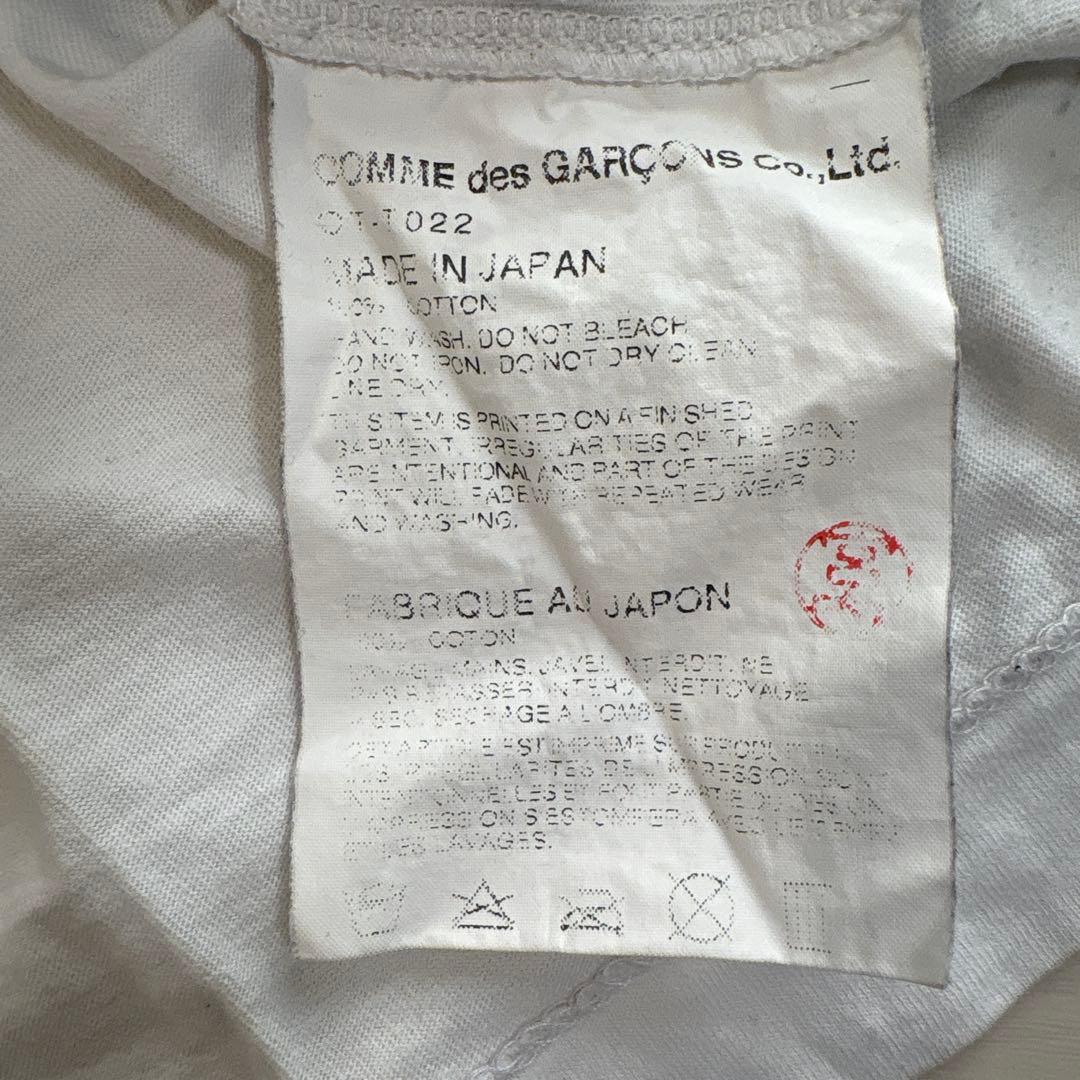 COMME des GARÇONS Co.,Ltd.
OT-T022
MADE IN JAPAN
100% COTTON
HAND WASH. DO NOT BLEACH
DO NOT IRON. DO NOT DRY CLEAN
LINE DRY.
THIS ITEM IS PRINTED ON A FINISHED
GARMENT. IRREGULARITIES OF THE PRINT
ARE INTENTIONAL AND PART OF THE DESIGN
PRINT WILL FADE WITH REPEATED WEAR
AND WASHING.
FABRIQUE AU JAPON
100% COTON
MAINS. JAVEL INTERDIT. NE
PAS REPASSER. INTERDIT NETTOYAGE
A SEC. SECHAGE A L'OMBRE.
CET ARTICLE EST IMPRIME SUR PRODUIT
DE L'IMPRESSION SONT
ET FONT PARTIE DU DESIGN
L'IMPRESSION S'ESTOMPERA AVEC LE TEMPS
ET LES LAVAGES.